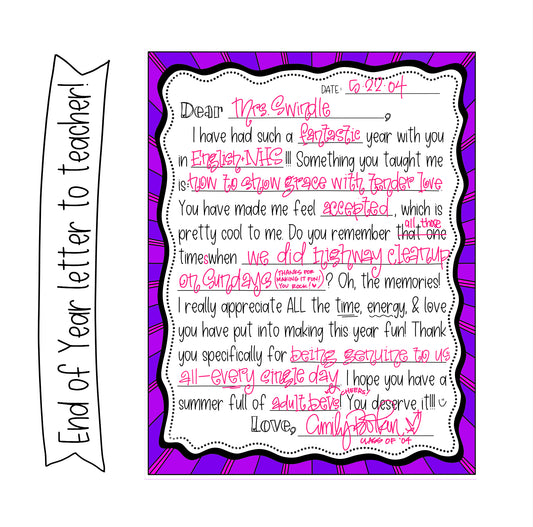 End of Year letter to teacher!
DATE: 5·22·04
Dear Mrs. Swindle,
I have had such a fantastic year with you
in English·NHS!!! Something you taught me
is: how to show grace with tender love
You have made me feel accepted, which is
all those
pretty cool to me. Do you remember that one
timeswhen we did highway cleanup
on Sundays (THANKS FOR MAKING IT FUN! YOU ROCK!)? Oh, the memories!
I really appreciate ALL the time, energy, & love
you have put into making this year fun! Thank
you specifically for being genuine to us
all-every single day. I hope you have a
CHEERS!
summer full of adult bevs! You deserve it!!!
Love, Emily
CLASS OF '04